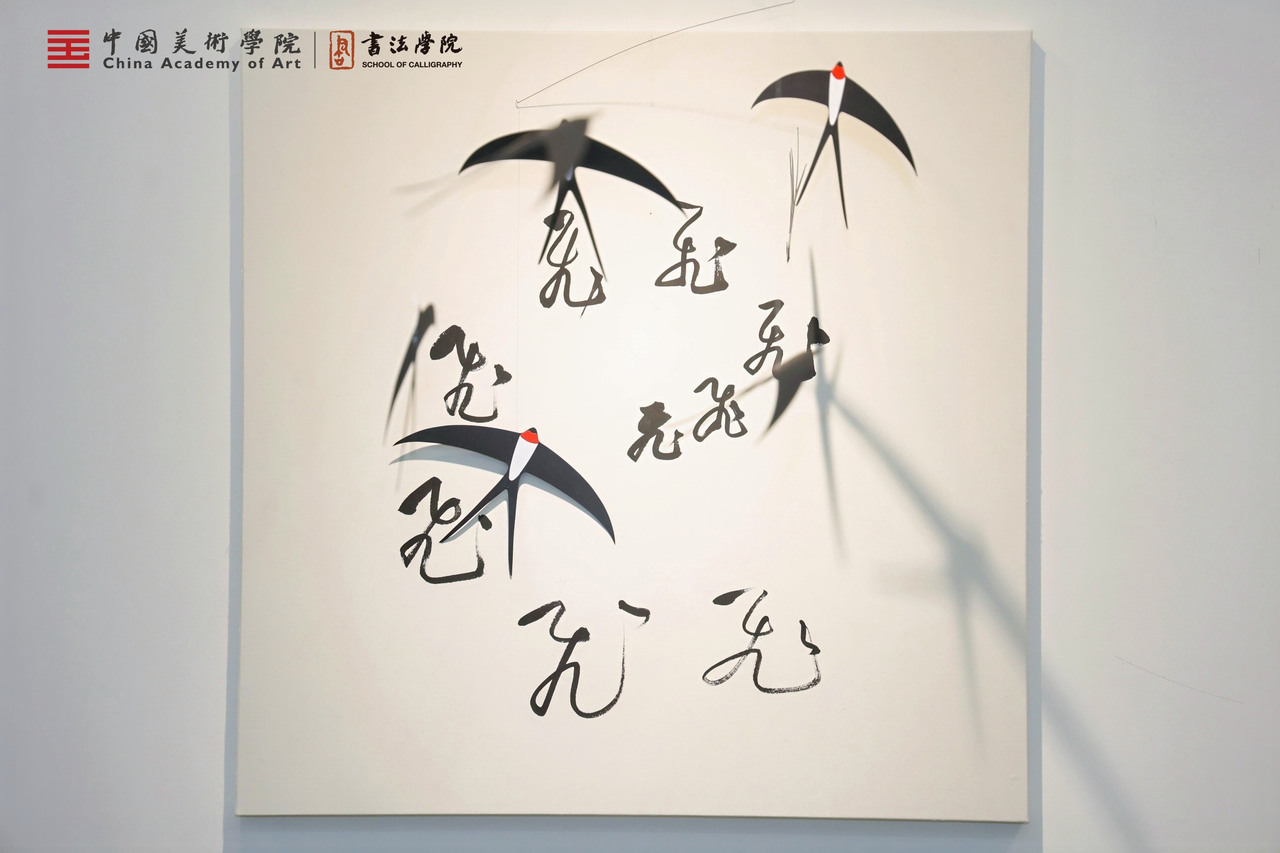 中國美術學院
China Academy of Art
書法學院
SCHOOL OF CALLIGRAPHY
飛
飛
飛
飛
飛
飛
飛
飛
飛